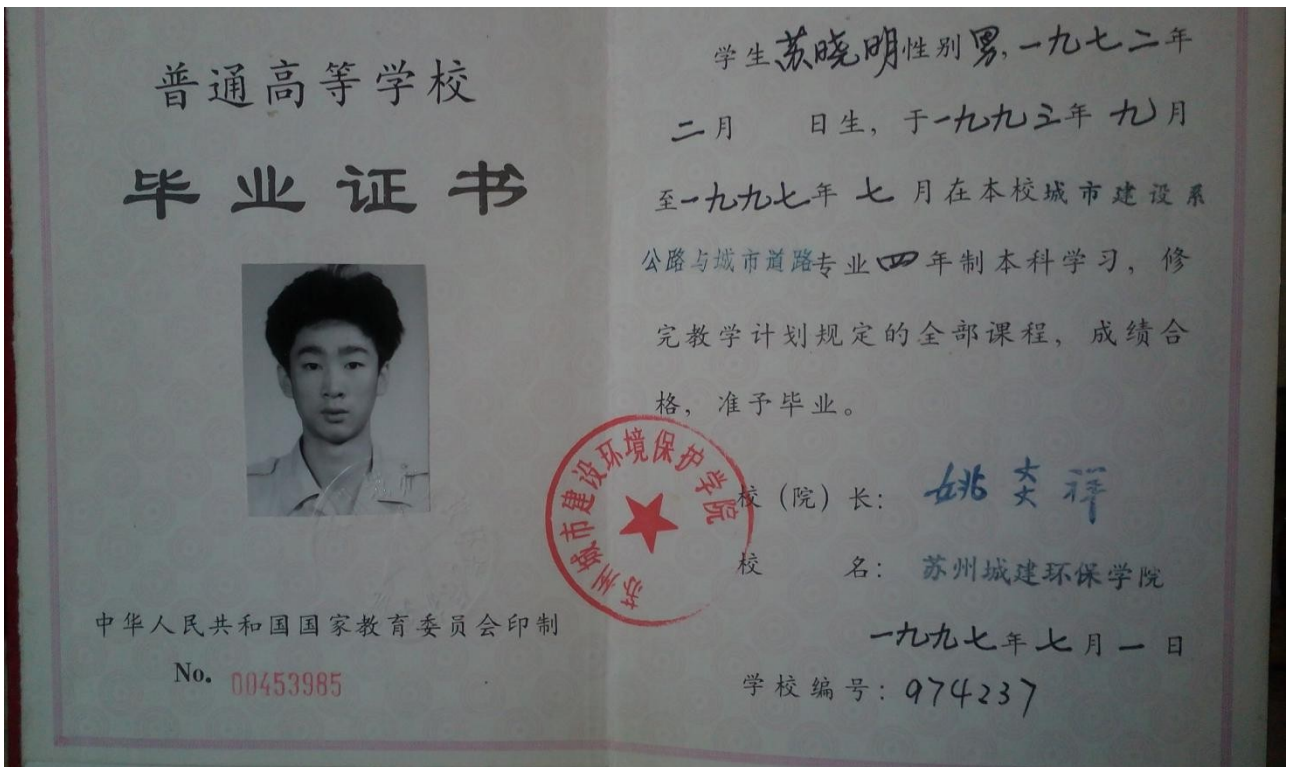 普通高等学校
毕业证书
中华人民共和国国家教育委员会印制
No. 00453985
学生苏晓明性别男，一九七二年
二月 日生，于一九九三年九月
至一九九七年七月在本校城市建设系
公路与城市道路专业四年制本科学习，修
完教学计划规定的全部课程，成绩合
格，准予毕业。
苏州城市建设环境保护学院
校（院）长：姚炎祥
校 名：苏州城建环保学院
一九九七年七月一日
学校编号：974237